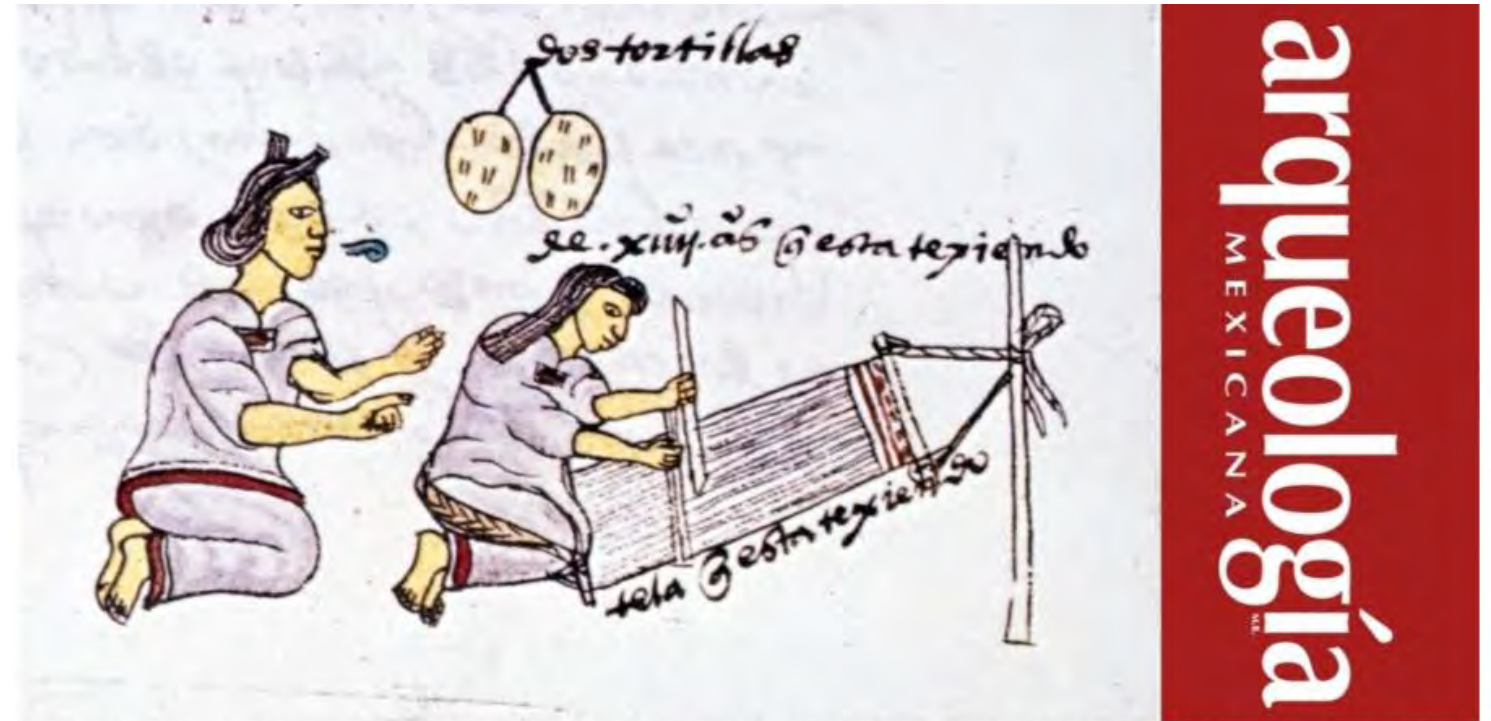 dos tortillas
de . xiiij. aos q̃ esta texiendo
tela q̃ esta texiendo
arqueología
MEXICANA
M.R.